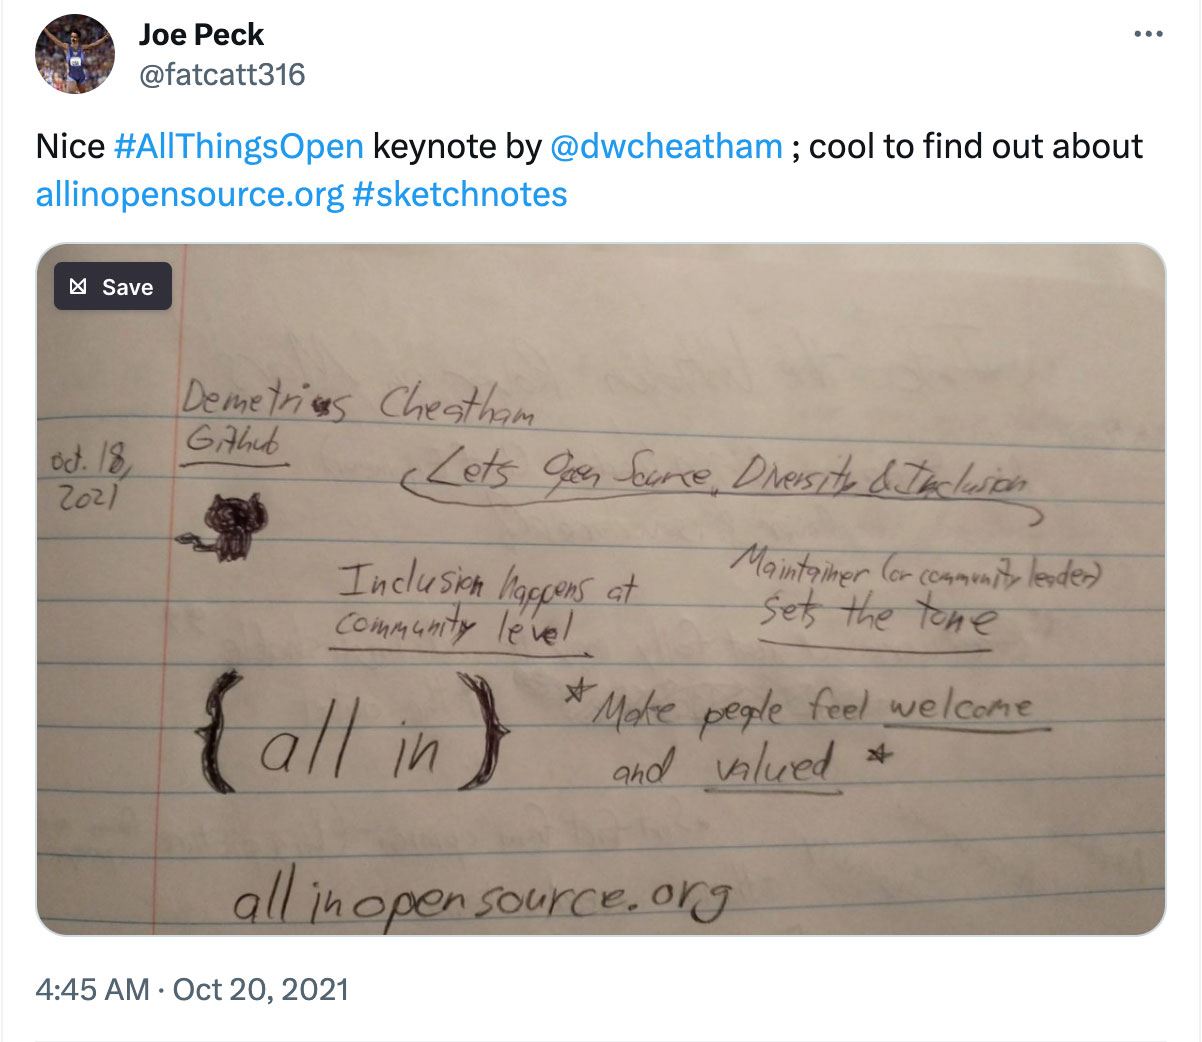 Joe Peck
@fatcatt316
Nice #AllThingsOpen keynote by @dwcheatham ; cool to find out about
allinopensource.org #sketchnotes
Save
Demetrius Cheatham
Github
oct. 18,
2021
Lets Open Source Diversity & Inclusion
Inclusion happens at
community level
Maintainer (or community leader)
sets the tone
{all in}
*Make people feel welcome
and valued *
allinopensource.org
4:45 AM · Oct 20, 2021